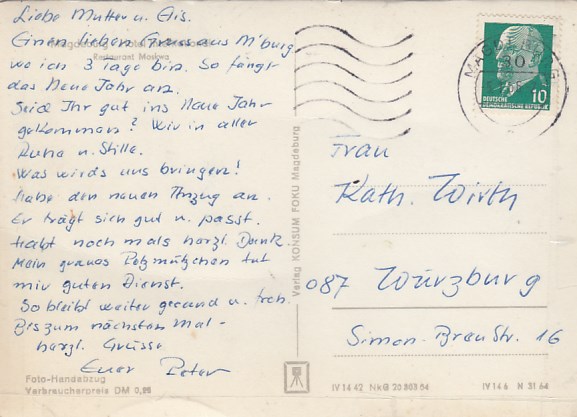 Liebe Mutter u. Elis.
Einen lieben Gruss aus M'burg
wo ich 3 Tage bin. So fängt
das Neue Jahr an.
Seid Ihr gut ins Neue Jahr
gekommen? Wir in aller
Ruhe u. Stille.
Was wird's uns bringen!
Habe den neuen Anzug an.
Er trägt sich gut u. passt.
Habt noch mals herzl. Dank
Mein graues Pelzmützchen tut
mir guten Dienst.
So bleibt weiter gesund u. froh.
Bis zum nächsten Mal-
herzl. Grüsse
Euer Peter
Restaurant Moskwa
Foto-Handabzug
Verbraucherpreis DM 0,95
Verlag KONSUM FOKU Magdeburg
MAGDEBURG
DEUTSCHE
DEMOKRATISCHE REPUBLIK
10
Frau
Kath. Wirth
087 Würzburg
Simon-Breu Str. 16
IV 14 42 NkG 20 803 64
IV 14 6 N 31 64